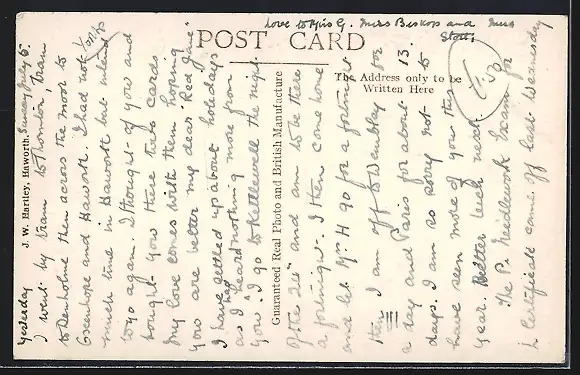 Love to Miss G. Miss Bishop and Miss
Stott.
POST CARD
The Address only to be
Written Here
J. W. Hartley, Haworth.
Guaranteed Real Photo and British Manufacture
Sunday July 5.
Yesterday
I went by tram to Thornton, tram
to Denholme then across the moor to
Greenhope and Haworth. I had not
much time in Haworth but intend
to go again. I thought of you and
bought you these two cards
My love comes with them hoping
you are better my dear "Red Jane"
I have settled up about holidays
as I had heard nothing more from
you. I go to Kettlewell the night
of the and am to be there
a fortnight. I then come home
and let Mrs H go for a fortnight
then I am off to Wembley for
a day and Paris for about 13.
days. I am so sorry not to
have seen more of you this
year. Better luck next.
The P. Needlework Exam for
Certificate came off last Wednesday